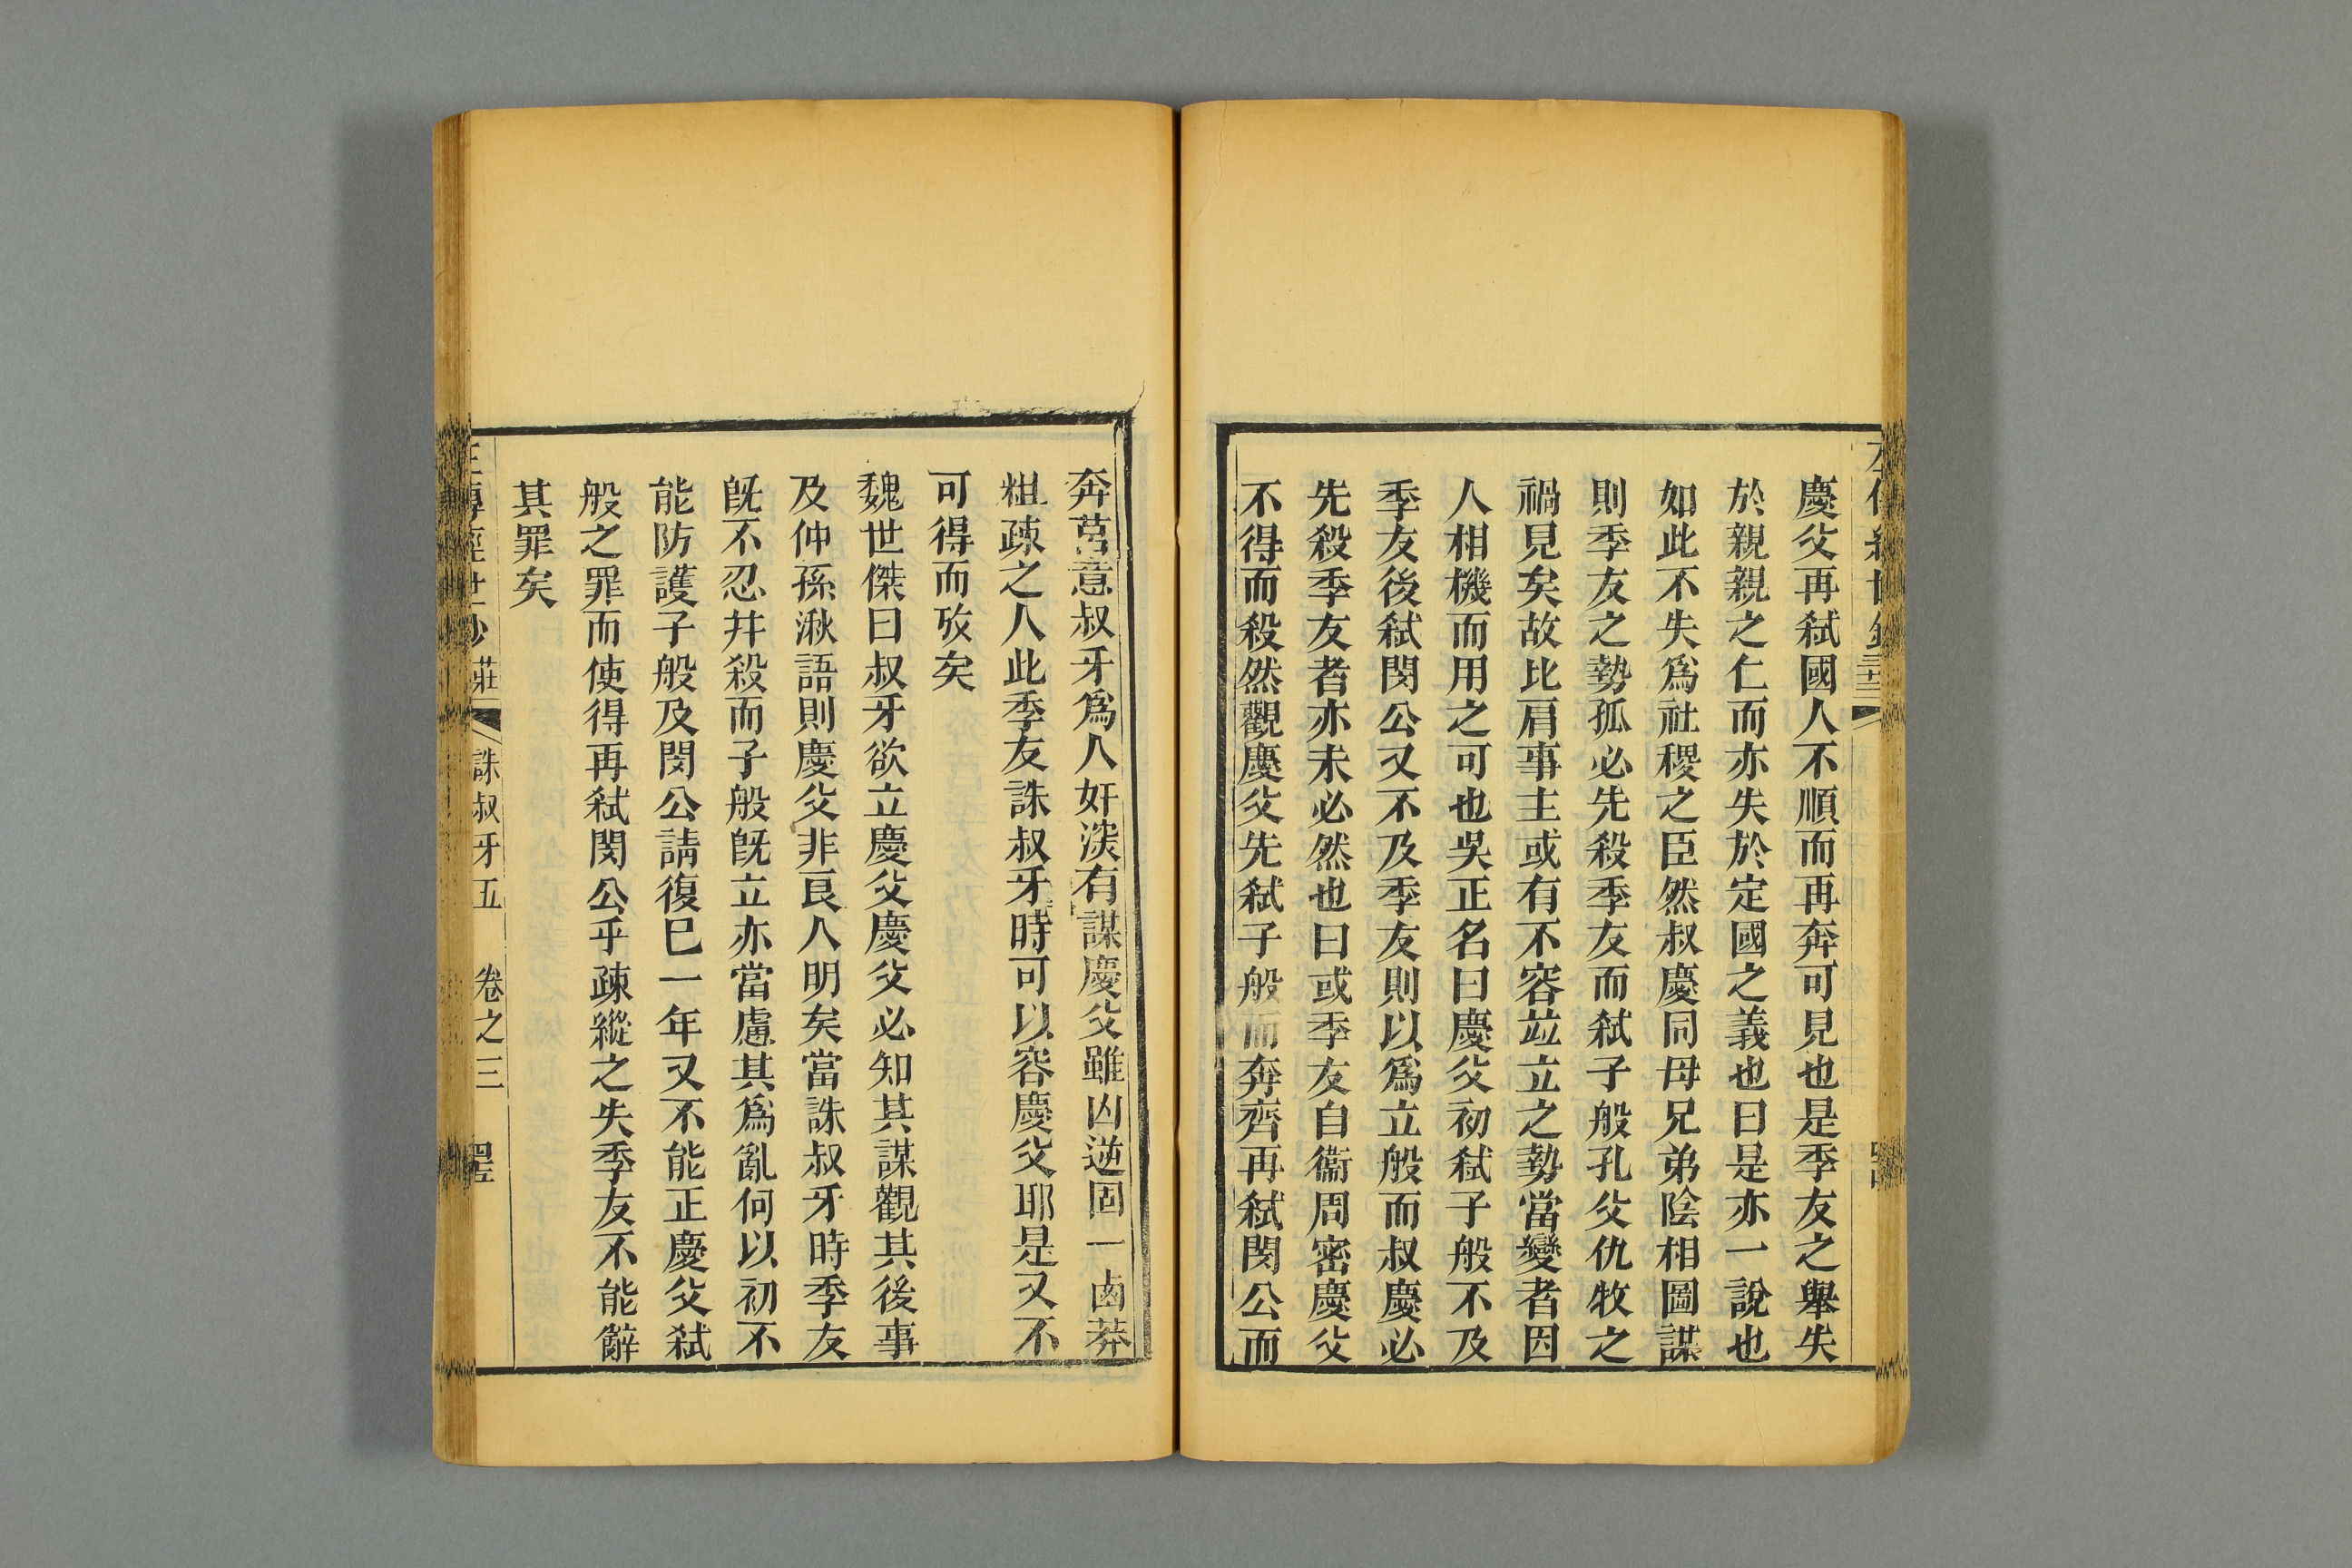 慶父再弑國人不順而再奔可見也是季友之舉失
於親親之仁而亦失於定國之義也曰是亦一說也
如此不失爲社稷之臣然叔慶同母兄弟陰相圖謀
則季友之勢孤必先殺季友而弑子般孔父仇牧之
禍見矣故比肩事主或有不容竝立之勢當變者因
人相機而用之可也吳正名曰慶父初弑子般不及
季友後弑閔公又不及季友則以爲立般而叔慶必
先殺季友者亦未必然也曰或季友自衞周密慶父
不得而殺然觀慶父先弑子般而奔齊再弑閔公而
奔莒意叔牙爲人奸深有謀慶父雖凶逆固一鹵莽
粗疎之人此季友誅叔牙時可以容慶父耶是又不
可得而攷矣
魏世傑曰叔牙欲立慶父慶父必知其謀觀其後事
及仲孫湫語則慶父非良人明矣當誅叔牙時季友
既不忍并殺而子般既立亦當慮其爲亂何以初不
能防護子般及閔公請復已一年又不能正慶父弑
般之罪而使得再弑閔公乎疎縱之失季友不能辭
其罪矣
左傳經世鈔 莊 誅叔牙五 卷之三